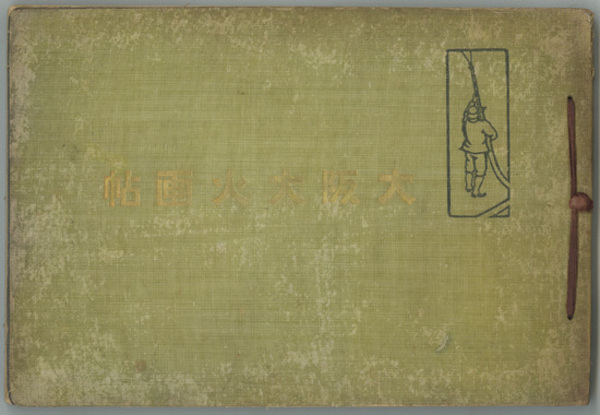 大阪大火画帖